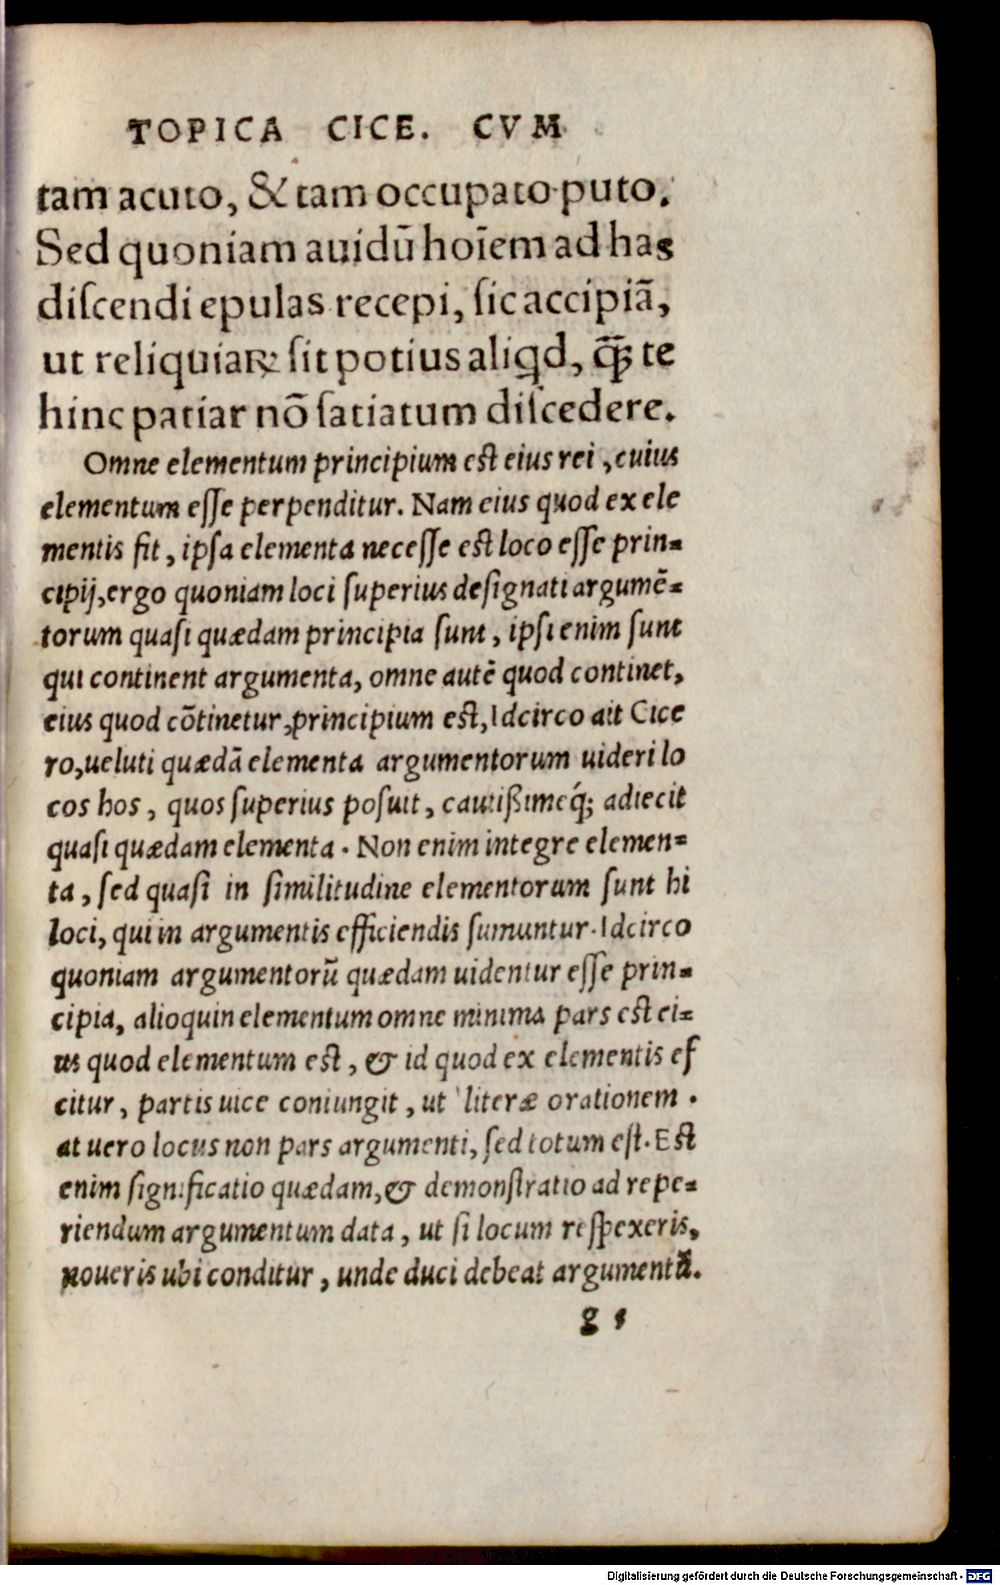 TOPICA CICE. CVM
tam acuto, & tam occupato puto.
Sed quoniam auidū hoīem ad has
diſcendi epulas recepi, ſic accipiā,
ut reliquiaꝝ ſit potius aliqd, q̄ꝫ te
hinc patiar nō ſatiatum diſcedere.
Omne elementum principium eſt eius rei, cuius
elementum eſſe perpenditur. Nam eius quod ex ele
mentis fit, ipſa elementa neceſſe eſt loco eſſe prin=
cipij, ergo quoniam loci ſuperius deſignati argumē=
torum quaſi quædam principia ſunt, ipſi enim ſunt
qui continent argumenta, omne autē quod continet,
eius quod cōtinetur, principium eſt, Idcirco ait Cice
ro, ueluti quædā elementa argumentorum uideri lo
cos hos, quos ſuperius poſuit, cautißimeq́; adiecit
quaſi quædam elementa. Non enim integre elemen=
ta, ſed quaſi in ſimilitudine elementorum ſunt hi
loci, qui in argumentis efficiendis ſumuntur. Idcirco
quoniam argumentorū quædam uidentur eſſe prin=
cipia, alioquin elementum omne minima pars eſt ei=
us quod elementum eſt, & id quod ex elementis ef
citur, partis uice coniungit, ut literæ orationem.
at uero locus non pars argumenti, ſed totum eſt. Eſt
enim ſignificatio quædam, & demonſtratio ad repe=
riendum argumentum data, ut ſi locum reſpexeris,
noueris ubi conditur, unde duci debeat argumentū.
g
Digitalisierung gefördert durch die Deutsche Forschungsgemeinschaft - DFG